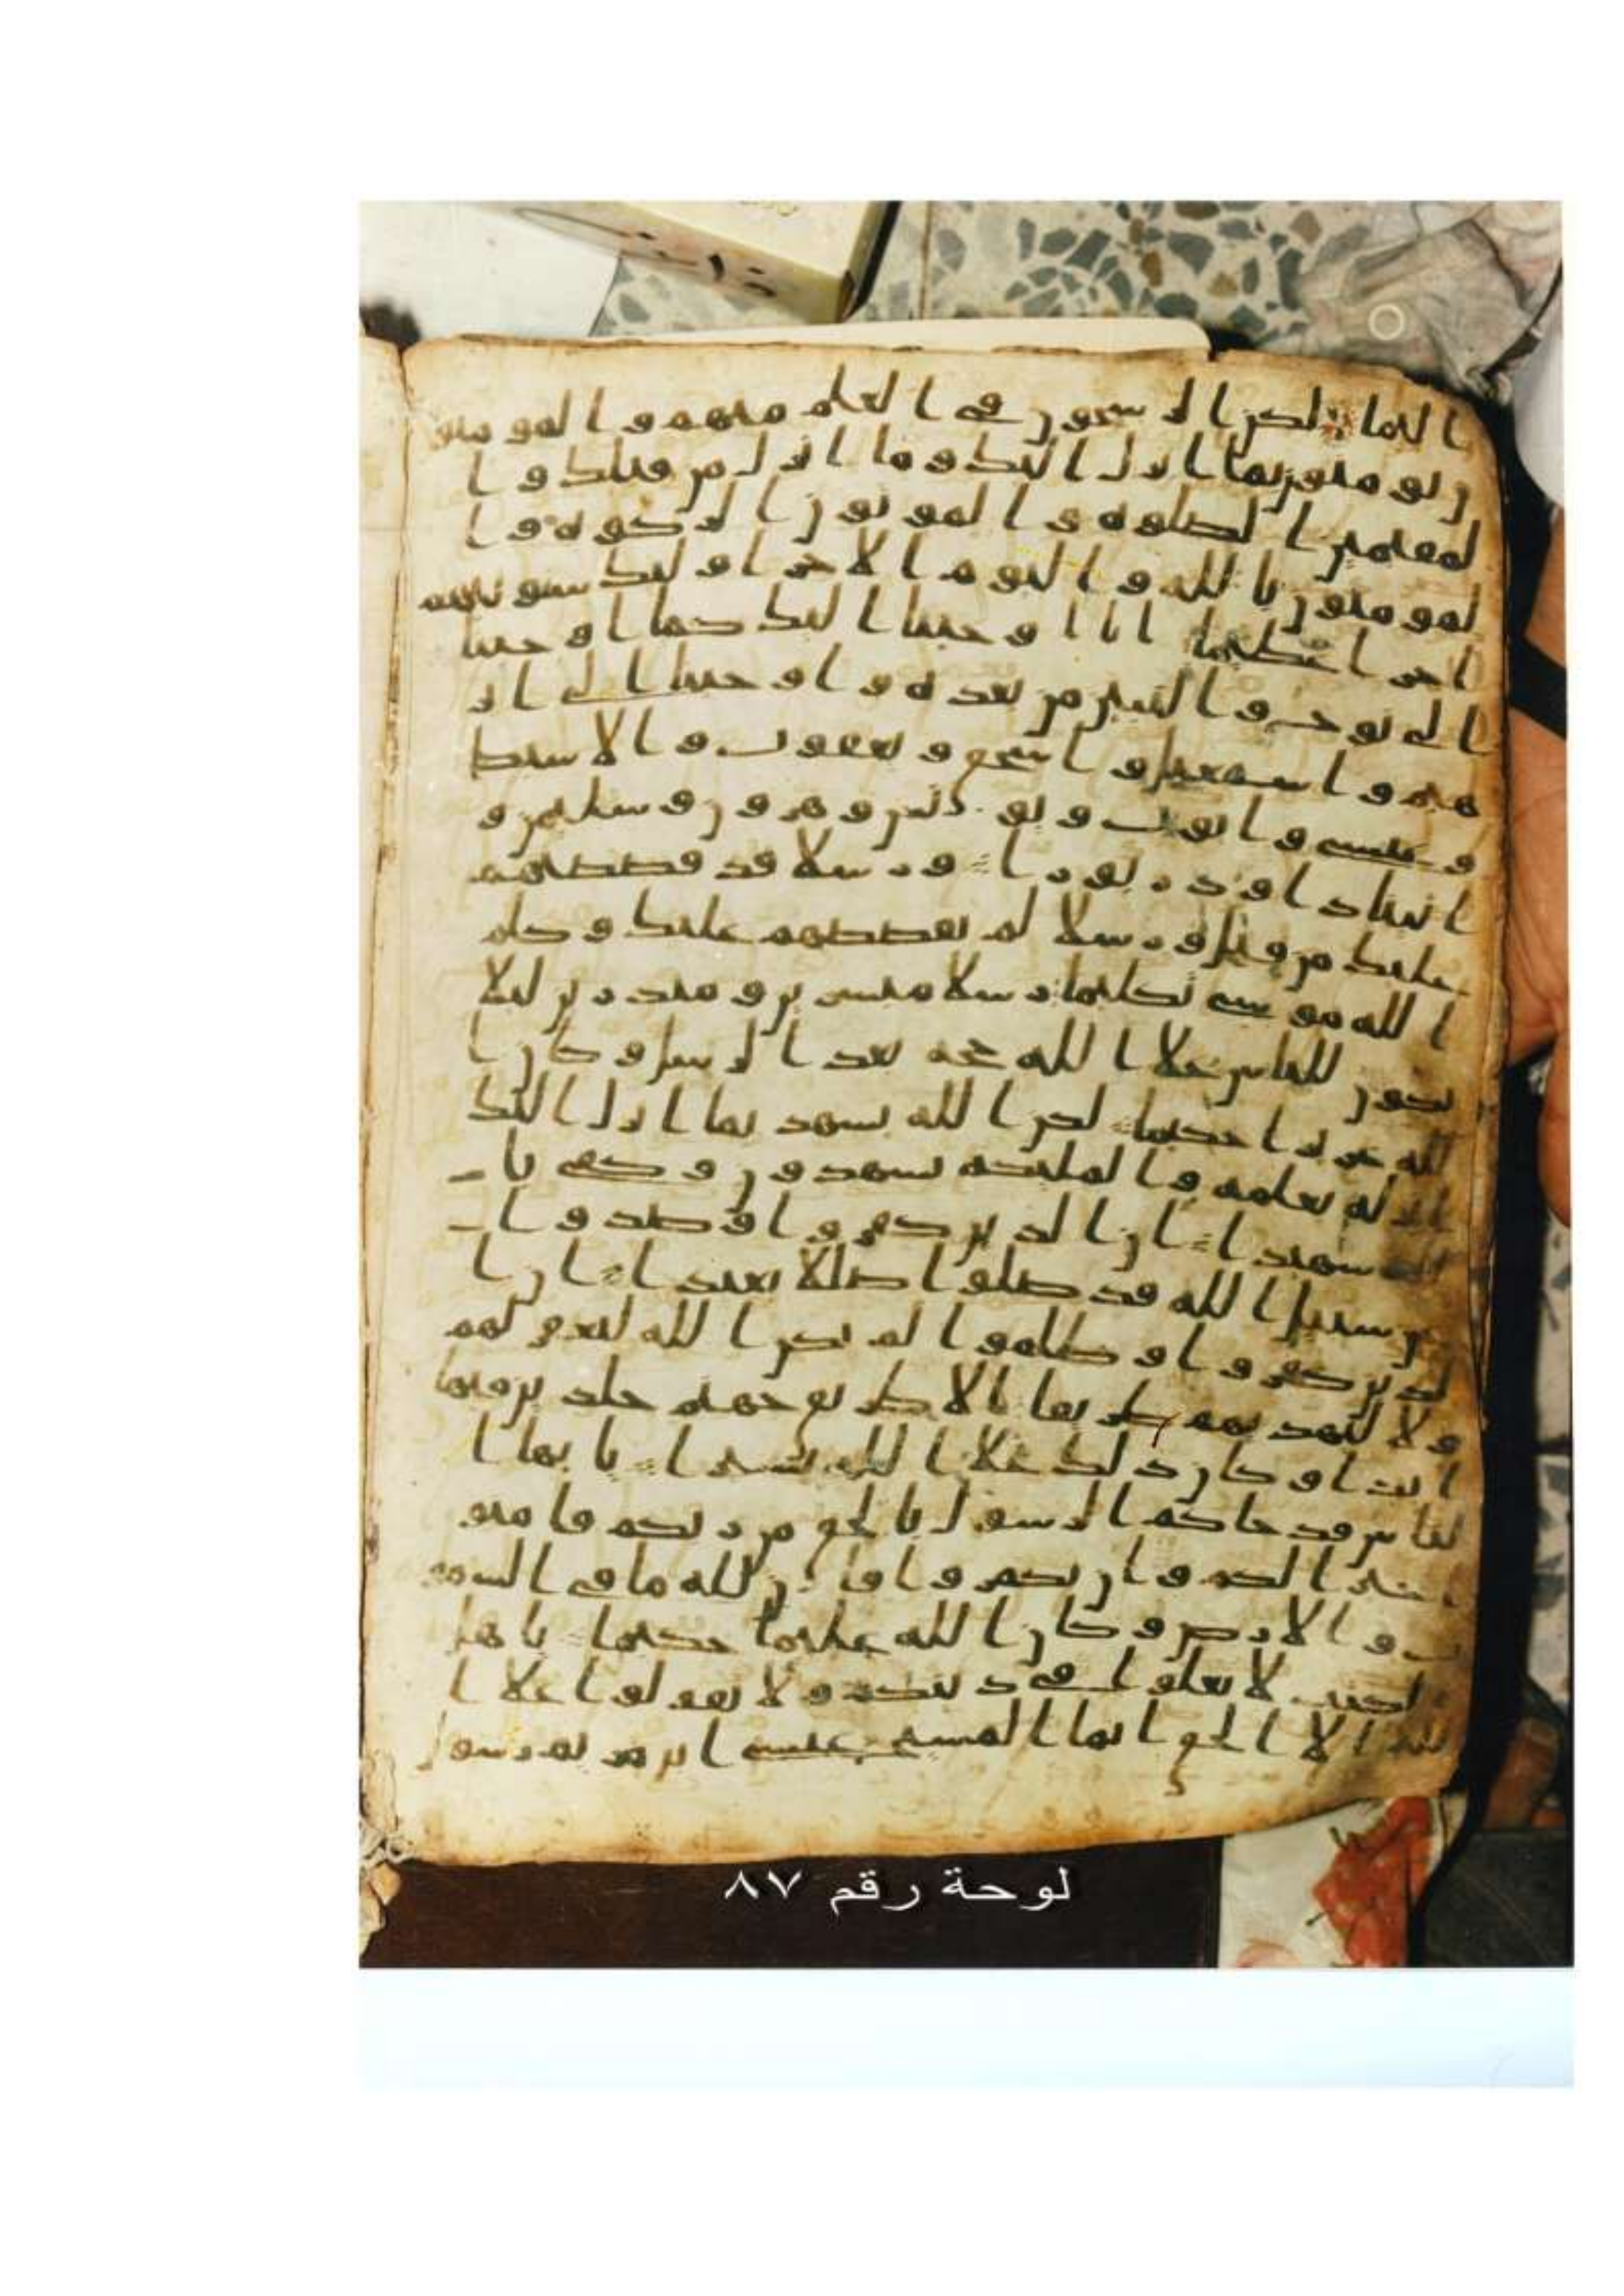 ا اليما لكن الرسخون في العلم منهم والمومنو
ن يومنون بما انزل اليك وما انزل من قبلك وا
لمقيمين الصلوه والموتون الزكوه وا
لمومنون بالله واليوم الاخر اوليك سنوتيهم
اجرا عظيما انا اوحينا اليك كما اوحينا
الى نوح والنبين من بعده واوحينا الى ابر
هيم واسمعيل واسحق ويعقوب والاسبط
وعيسى وايوب ويونس وهرون وسليمن و
اتينا داود زبورا ورسلا قد قصصنهم
عليك من قبل ورسلا لم نقصصهم عليك وكلم
الله موسى تكليما رسلا مبشرين ومنذرين ليلا
يكون للناس علا الله حجه بعد الرسل وكان ا
لله عزيزا حكيما لكن الله يشهد بما انزل اليك
انزله بعلمه والمليكه يشهدون وكفى با
لله شهيدا ان الذين كفروا وصدوا
عن سبيل الله قد ضلوا ضللا بعيدا ان ا
لذين كفروا وظلموا لم يكن الله ليغفر لهم
ولا ليهديهم طريقا الا طريق جهنم خلدين فيها
ابدا وكان ذلك علا الله يسيرا يايها ا
لناس قد جاكم الرسول بالحق من ربكم فامنو
ا خيرا لكم وان تكفروا فان لله ما في السمو
ت والارض وكان الله عليما حكيما ياهل
الكتب لا تغلوا في دينكم ولا تقولوا علا ا
لله الا الحق انما المسيح عيسى ابن مريم رسول
لوحة رقم ٨٧